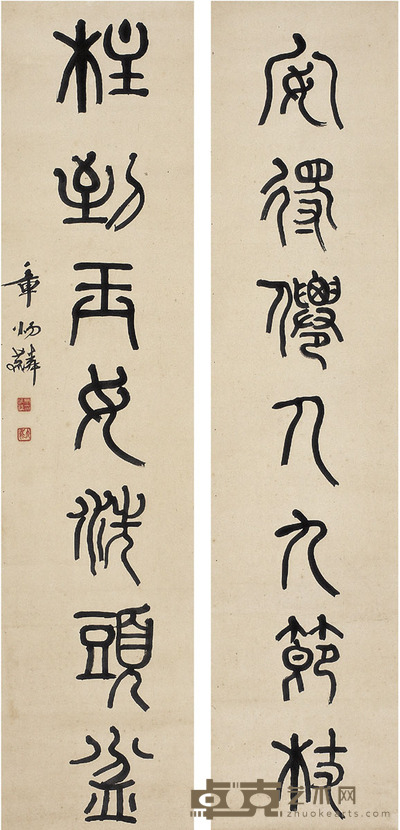 安得僊人九節杖
柱到玉女洗頭盆
章炳麟
卓克艺术网
zhuokearts.com